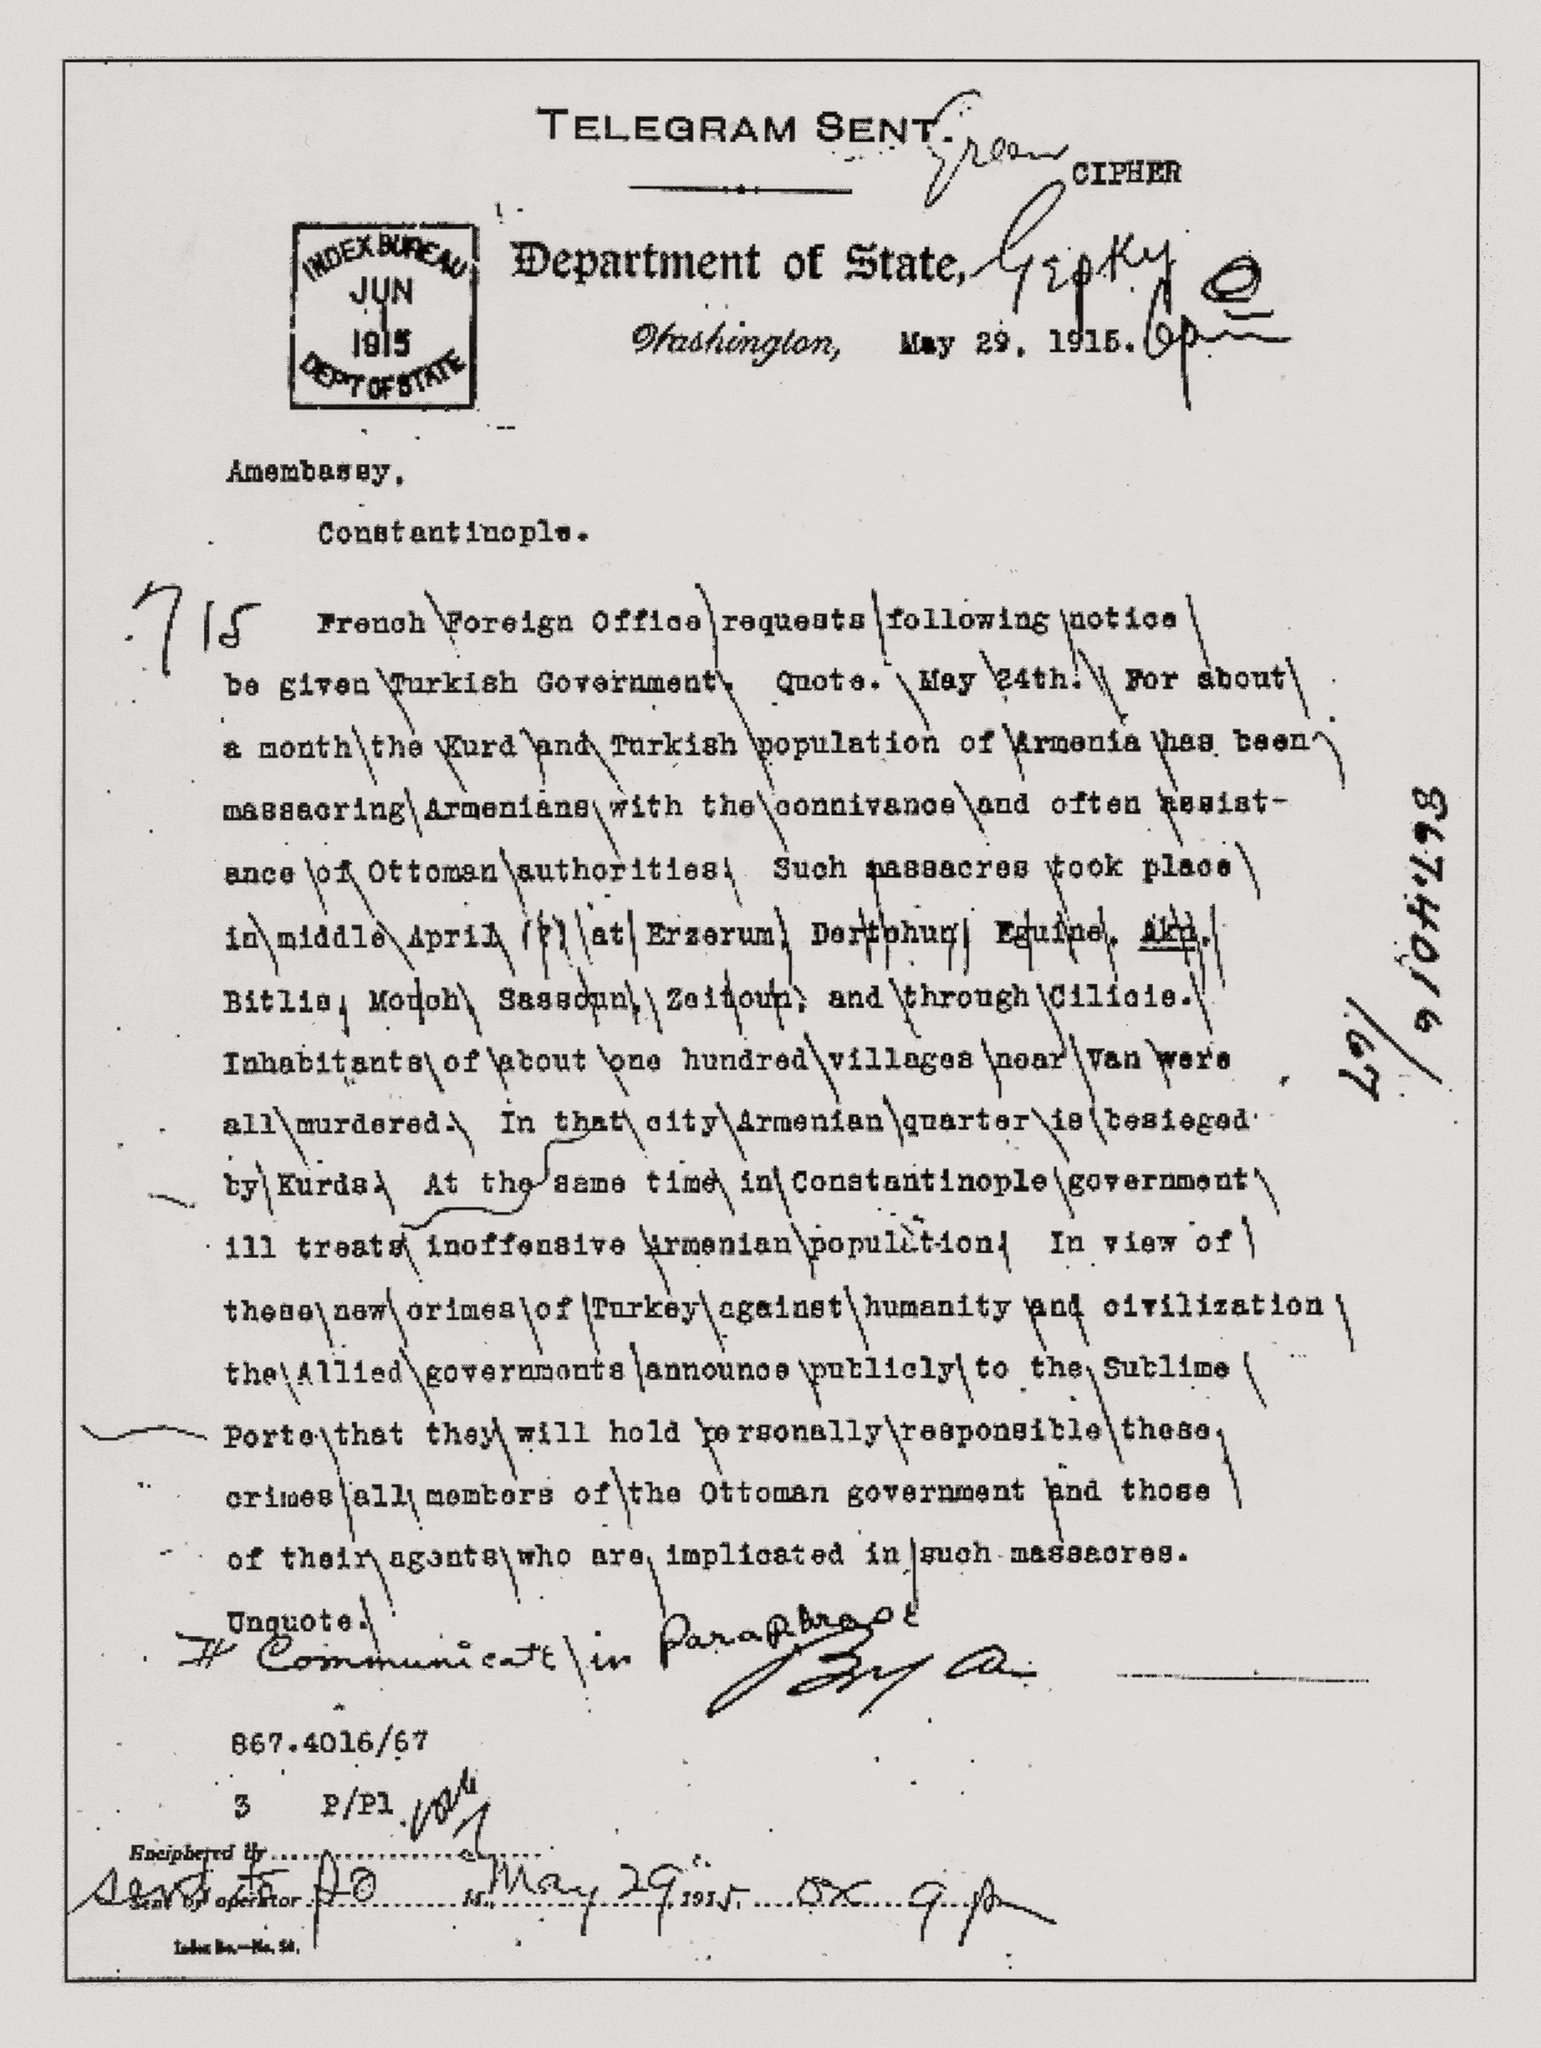 TELEGRAM SENT.
Green
CIPHER
INDEX BUREAU
JUN
1
1915
DEP'T OF STATE
Department of State,
Washington, May 29, 1915.
Amembassy,
Constantinople.
715
French Foreign Office requests following notice
be given Turkish Government. Quote. May 24th. For about
a month the Kurd and Turkish population of Armenia has been
massacring Armenians with the connivance and often assist-
ance of Ottoman authorities. Such massacres took place
in middle April (?) at Erzerum, Dertchun, Eguine, Akn,
Bitlis, Mouch, Sassoun, Zeitoun, and through Cilicie.
Inhabitants of about one hundred villages near Van were
all murdered. In that city Armenian quarter is besieged
by Kurds. At the same time in Constantinople government
ill treats inoffensive Armenian population. In view of
these new crimes of Turkey against humanity and civilization
the Allied governments announce publicly to the Sublime
Porte that they will hold personally responsible these
crimes all members of the Ottoman government and those
of their agents who are implicated in such massacres.
Unquote.
Communicate in Paraphrase
Bryan
867.4016/67
867.4016/67
3 P/Pl
Enciphered by
Sent by operator M., May 29 1915. 9 pm
sent to
Index Bu.—No. 50.